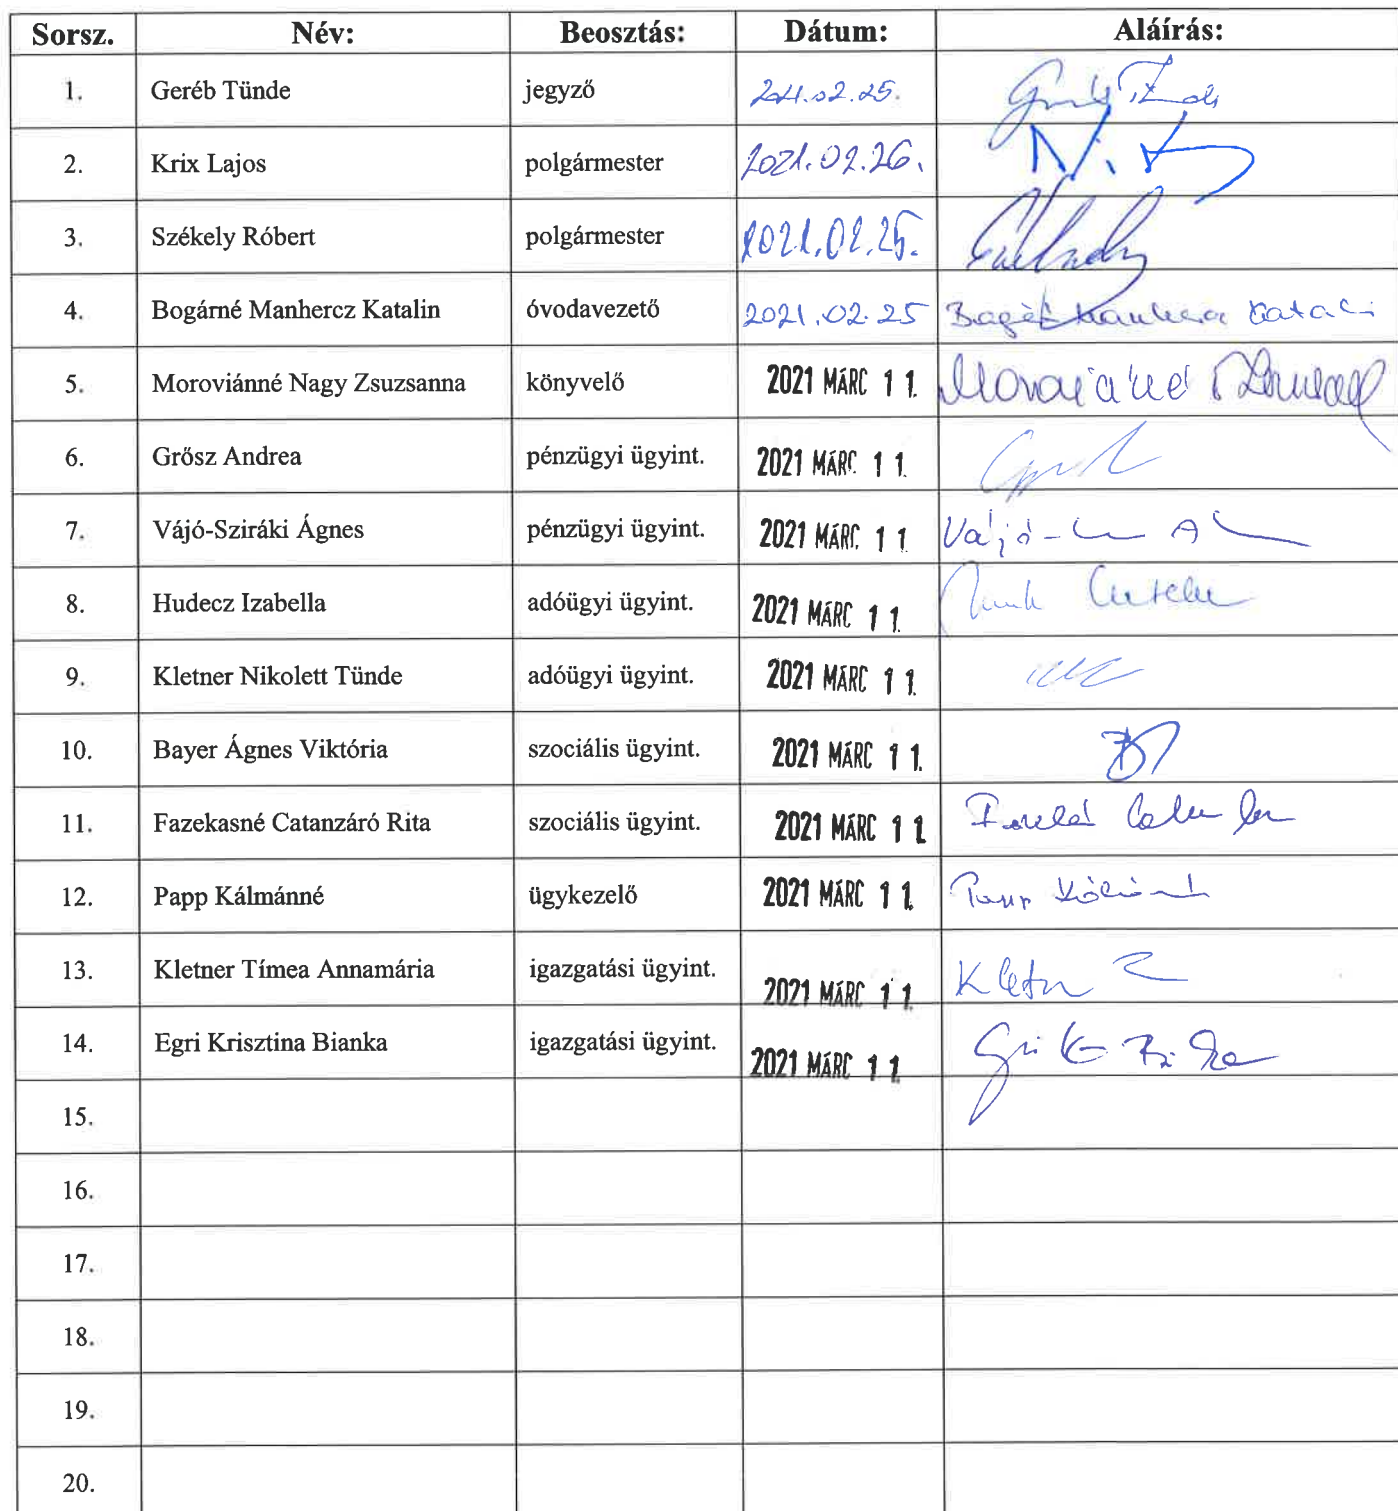 Sorsz. Név: Beosztás: Dátum: Aláírás:
1. Geréb Tünde jegyző 2021.02.25.
2. Krix Lajos polgármester 2021.02.26.
3. Székely Róbert polgármester 2021.02.25.
4. Bogárné Manhercz Katalin óvodavezető 2021.02.25
5. Moroviánné Nagy Zsuzsanna könyvelő 2021 MÁRC 11.
6. Grősz Andrea pénzügyi ügyint. 2021 MÁRC. 11.
7. Vájó-Sziráki Ágnes pénzügyi ügyint. 2021 MÁRC. 11
8. Hudecz Izabella adóügyi ügyint. 2021 MÁRC 11.
9. Kletner Nikolett Tünde adóügyi ügyint. 2021 MÁRC 11.
10. Bayer Ágnes Viktória szociális ügyint. 2021 MÁRC 11.
11. Fazekasné Catanzáró Rita szociális ügyint. 2021 MÁRC 11.
12. Papp Kálmánné ügykezelő 2021 MÁRC 11.
13. Kletner Tímea Annamária igazgatási ügyint. 2021 MÁRC 11.
14. Egri Krisztina Bianka igazgatási ügyint. 2021 MÁRC 11.
15.
16.
17.
18.
19.
20.